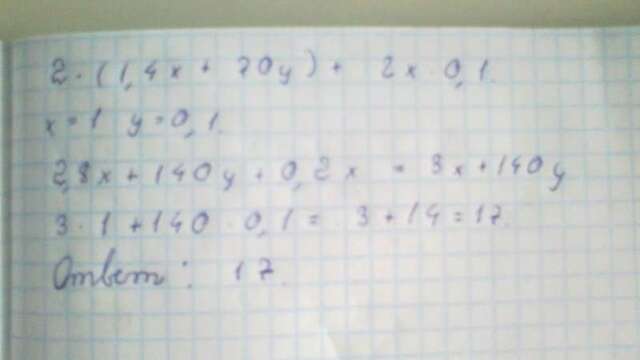 2·(1,4x + 70y) + 2x·0,1.
x=1 y=0,1.
2,8x+140y+0,2x = 3x+140y
3·1+140·0,1= 3+14=17.
Ответ: 17.